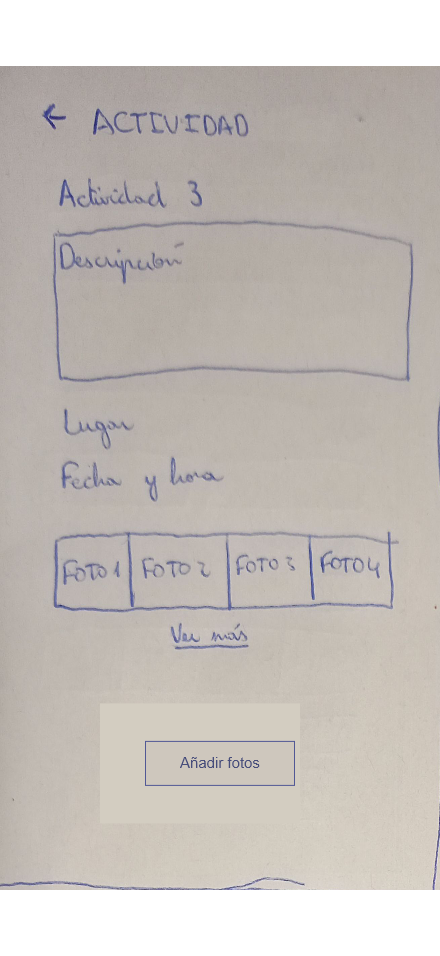 ← ACTIVIDAD
Actividad 3
Descripción
Lugar
Fecha y hora
FOTO 1 FOTO 2 FOTO 3 FOTO 4
Ver más
Añadir fotos